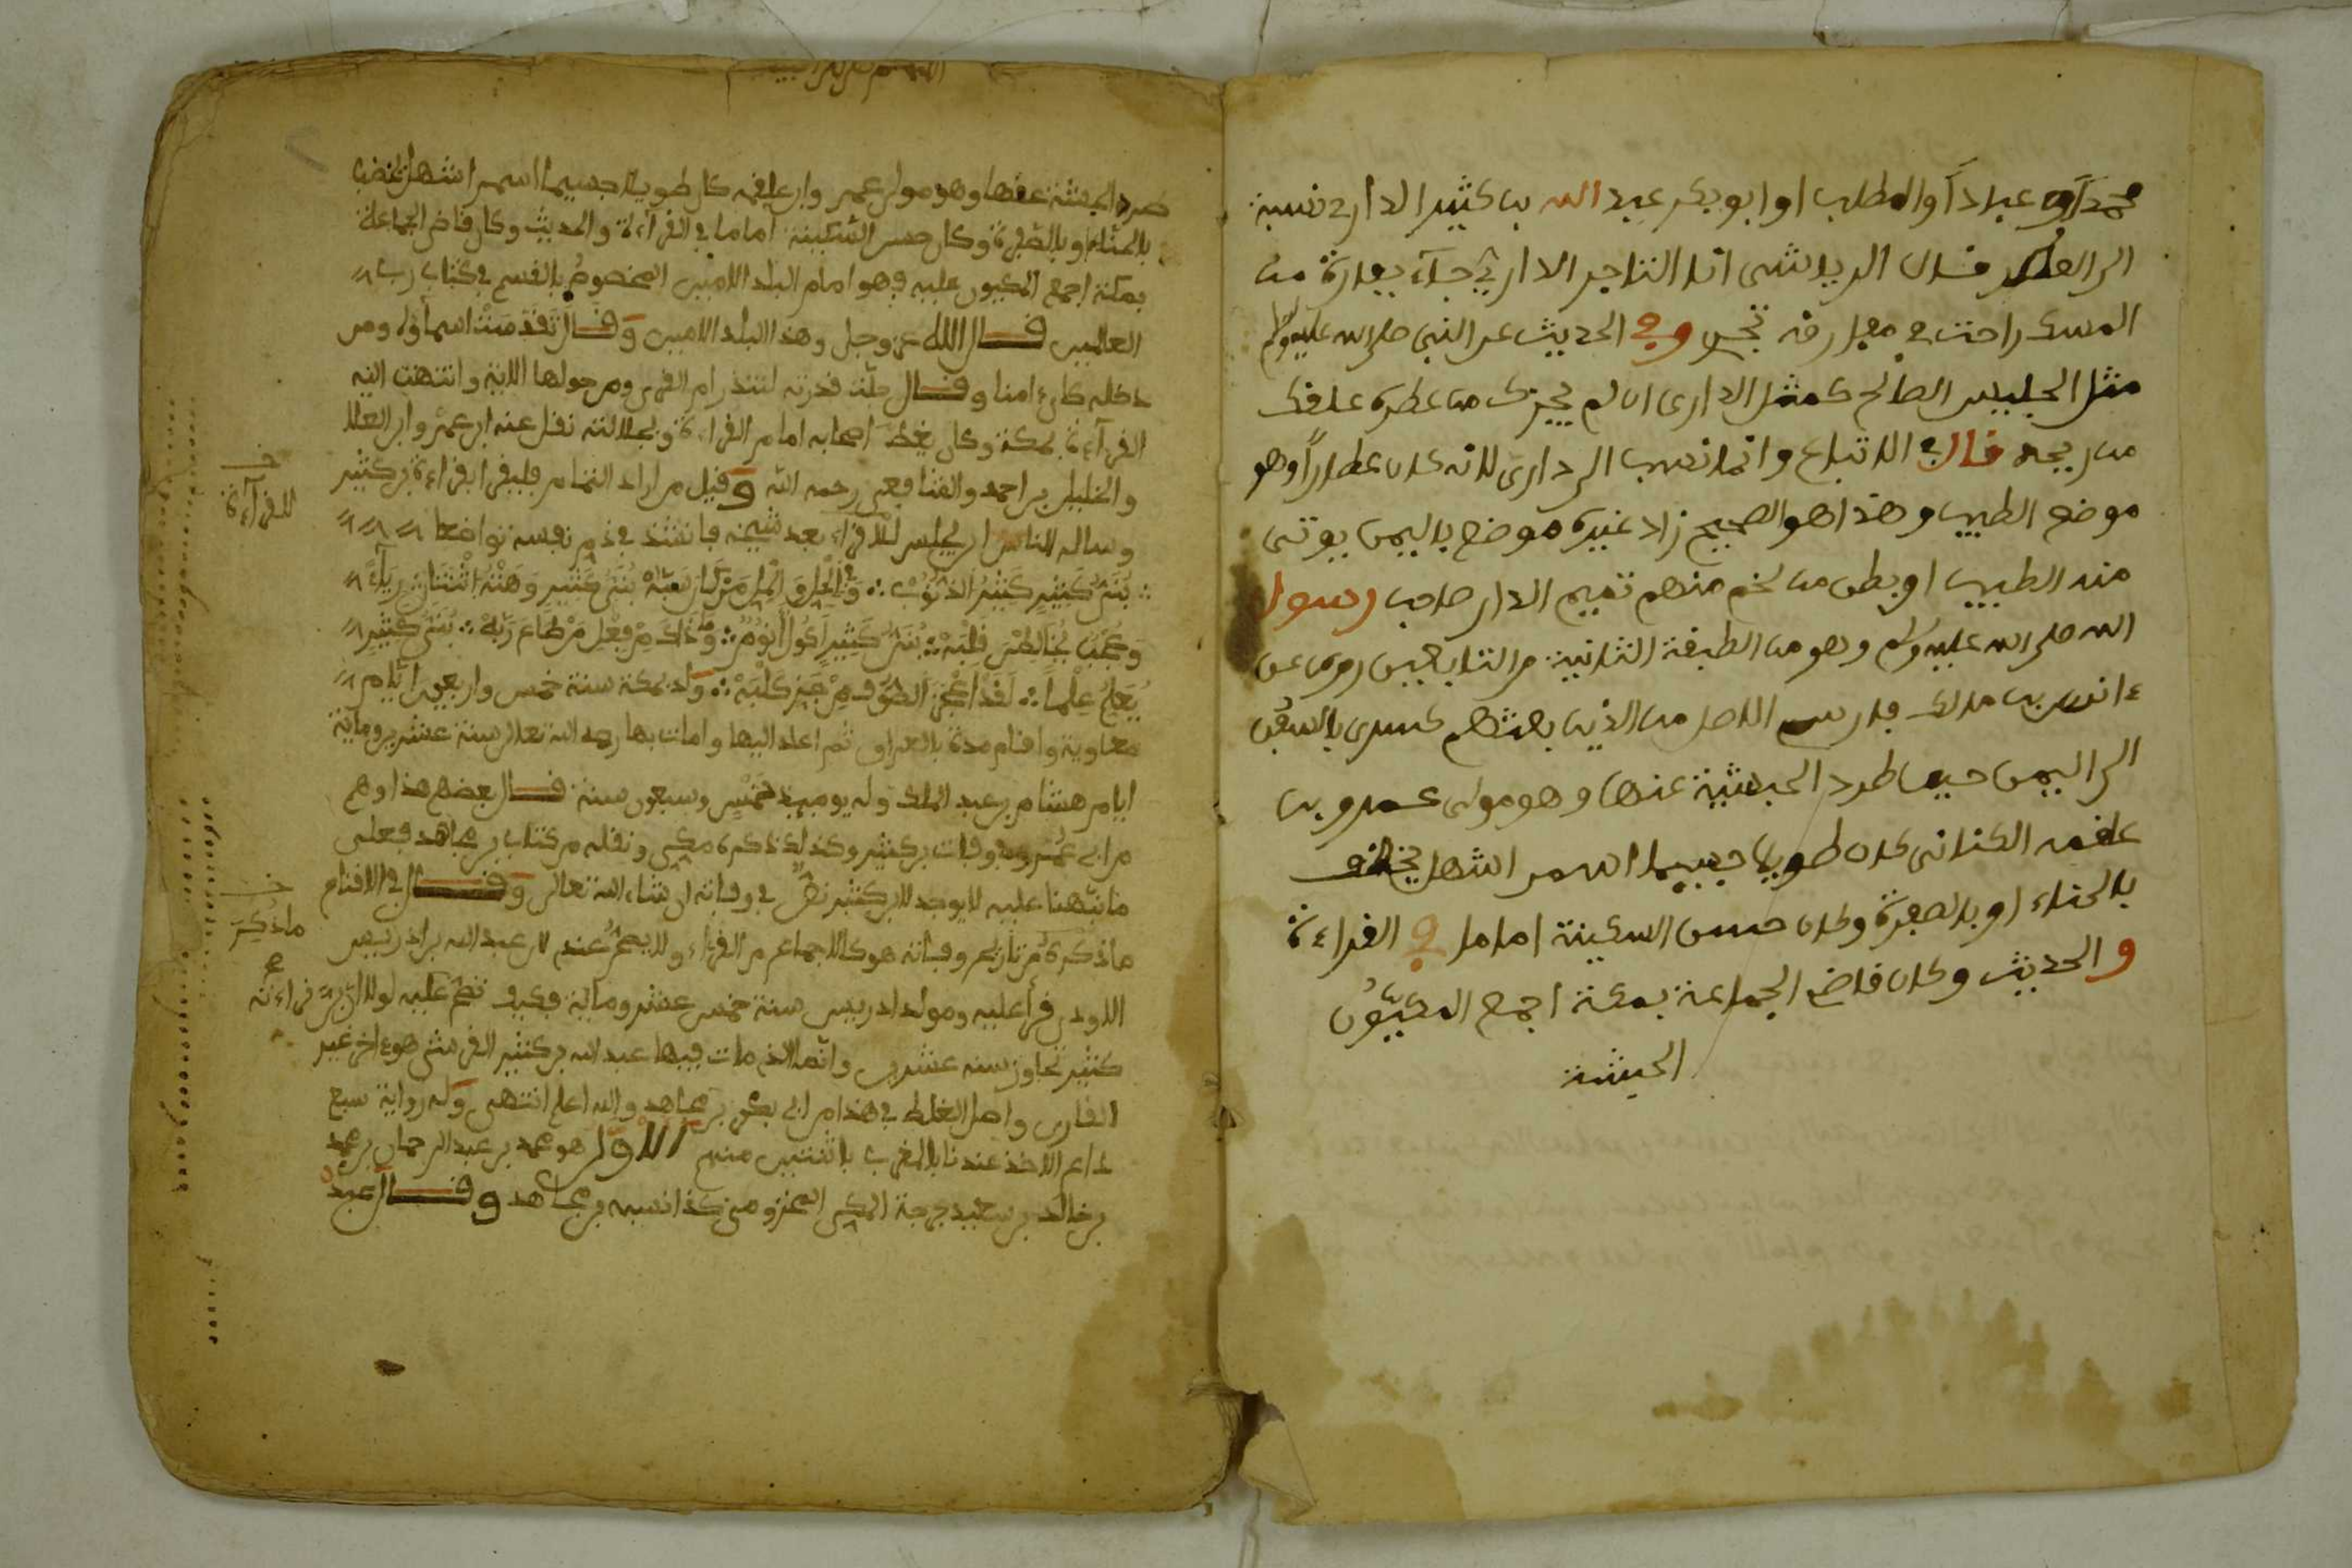 محمد أو عباد أو المطلب او ابو بكر عبد الله بن كثير الداري نسبة
الى العطر قال الرياشي انا التاجر الداري جآء بفارة من
المسك راحت في مفارقه تجري وفي الحديث عن النبي صلى الله عليه وسلم
مثل الجليس الصالح كمثل الداري ان لم يحزك من عطره علقك
من ريحه قال في الاتباع وانما نصب الى داري لانه كان عطاراً وهو
موضع الطيب وهذا هو الصحيح زاد غيره موضع باليمن يوتى
منه الطيب او بطن من لخم منهم تميم الدار صاحب رسول
الله صلى الله عليه وسلم وهو من الطبقة الثانية من التابعيين روى عن
ءانس بن مالك فارسي الاصل من الذين بعثهم كسرى بالسفن
الى اليمن حين طرد الحبشية عنها وهو مولى عمرو بن
علقمه الكناني كان طويلا جسيما اسمر اشهل يخضب
بالحناء او بالصفرة وكان حسن السكينة اماما في القراءة
والحديث وكان قاضي الجماعة بمكة اجمع المكيّون
الحبشة
طرد الحبشة عنها وهو مولى عمر وابن علقمه كان طويلا جسيما اسمر اشهل يخضب
بالحناء او بالصفرة وكان حسن السكينة اماما في القرآءة والحديث وكان قاضي الجماعة
بمكة اجمع المكيون عليه فهو امام البلد الامين المخصوص بالقسم في كتاب رب
العالمين قال الله عز وجل وهذا البلد الامين وقال تقدست اسمآؤه ومن
دخله كان ءامنا وقال جلت قدرته لتنذر ام القرى ومن حولها الاية وانتهت اليه
القرآءة بمكة وكان يعظ اصحابه امام القراءة ولجلالته نقل عنه ابو عمرو وابن العلا
والخليل بن احمد والشافعي رحمه الله وقيل من اراد التمام فليقرا بقراءة بن كثير
وساله الناس ان يجلس للاقراء بعد شيخه فانشد في ذم نفسه تواضعا
بُنَيُّ كَثِيرٍ كَثِيرُ الذُّنُوبْ وَفِي الْحِلِّ وَالْبِلِّ مَنْ كَانَ سَبَّهْ بُنَيُّ كَثِيرٍ دَهَتْهُ اثْنَتَانِ رِيَآءٌ
وَعُجْبٌ يُخَالِطْنَ قَلْبَهْ بُنَيُّ كَثِيرٍ أَكُولٌ نَؤُومٌ وَمَا ذَاكَ مِنْ فِعْلِ مَنْ خَافَ رَبَّهْ بُنَيُّ كَثِيرٍ
يُعَلِّمُ عِلْماً لَقَدْ أَعْوَزَ الصُّوفُ مَنْ جَزَّ كَلْبَهْ ولد بمكة سنة خمس واربعين ايام
معاوية واقام مدة بالعراق ثم عاد اليها ومات بها رحمه الله تعالى سنة عشرين ومآئة
ايام هشام بن عبد الملك وله يوميذ خمس وسبعون سنة قال بعضهم هذا وهم
وكذلك ذكره مكي ونقله من كتاب بن مجاهد فعلى
ما نبّهنا عليه لا يوجد لابن كثير نصّ في وفاته ان شاء الله تعالى وقال في الاقناع
ماذكره من تاريخ وفاته هو كالاجماع من القراء ولا يصح عندي لان عبد الله بن ادريس
الاودي قرأ عليه ومولد ادريس سنة خمس عشر ومآئة فكيف تصح عليه لولا ان بن
كثير تجاوز سنه عشرين وانما الذي مات فيها عبد الله بن كثير القرشي هو ءاخر غير
القارئ واصل الغلط في هذا من ابي بكر بن مجاهد والله اعلم انتهى وله رواية سبع
داع الاخذ عندنا بالمغرب باثنين منهم الاول هو محمد بن عبد الرحمان بن محمد
بن خالد بن سعيد جرجة المكي المخزومي كذا نسبه بن مجاهد وقال عبد
خـ
للقرآءة
خـ
ماذُكِرَ
قراءته